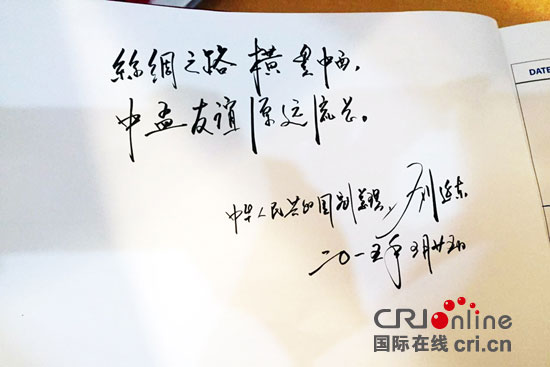 絲綢之路横贯中西,
中孟友谊源远流长。
中华人民共和国副总理 刘延东
二〇一五年五月廿五日
DATE
CRIonline
国际在线 cri.cn